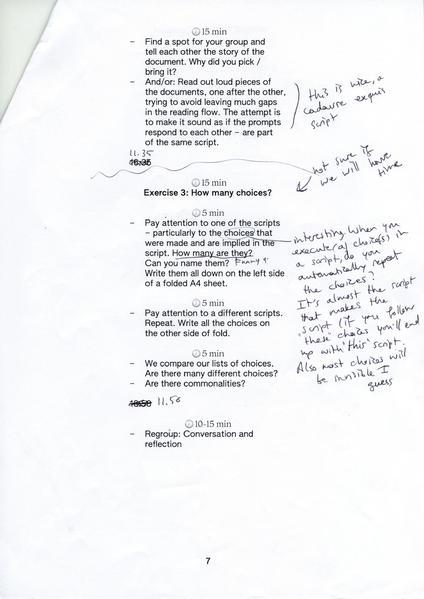 15 min
- Find a spot for your group and
tell each other the story of the
document. Why did you pick /
bring it?
- And/or: Read out loud pieces of
the documents, one after the other,
trying to avoid leaving much gaps
in the reading flow. The attempt is
to make it sound as if the prompts
respond to each other – are part
of the same script.
this is nice, a
cadavre exquis
script
11.35
not sure if
we will have
time
15 min
Exercise 3: How many choices?
5 min
- Pay attention to one of the scripts
– particularly to the choices that
were made and are implied in the
script. How many are they?
Can you name them?
Write them all down on the left side
of a folded A4 sheet.
interesting when you
execute (a) choice(s) in
a script, do you
automatically repeat
the choices?
It's almost the script
that makes the
script (if you follow
these choices you'll end
up with 'this' script.
Also most choices will
be invisible I
guess
5 min
- Pay attention to a different scripts.
Repeat. Write all the choices on
the other side of fold.
5 min
- We compare our lists of choices.
Are there many different choices?
- Are there commonalities?
11.50
10-15 min
- Regroup: Conversation and
reflection
7